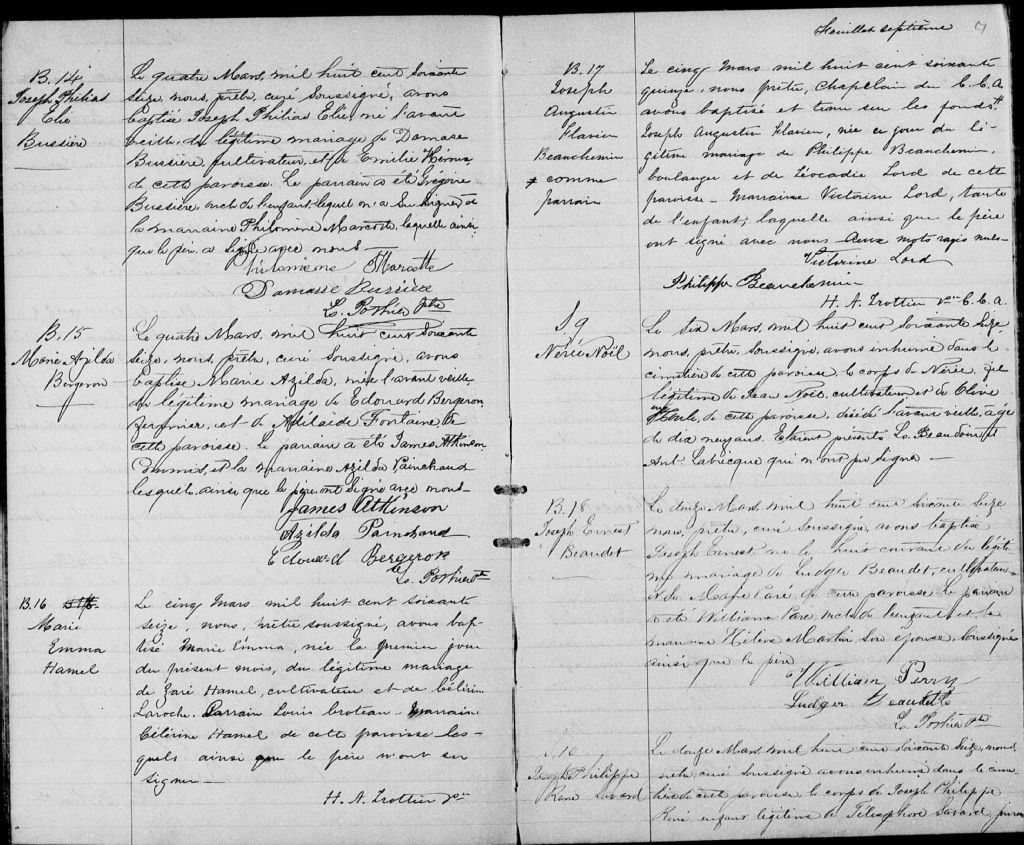 B. 14
Joseph Philias
Elie
Bussière
Le quatre Mars, mil huit cent soixante
seize, nous, prêtre, curé soussigné, avons
baptisé Joseph Philias Elie, né l'avant
veille, du légitime mariage de Damase
Bussière, cultivateur, et de Emilie
de cette paroisse. Le parrain a été Grégoire
Bussière, oncle de l'enfant, lequel n'a su signer, et
la marraine Philomène Marcotte, laquelle ainsi
que le père a signé avec nous —
Philomène Marcotte
Damasse Bussière
L. Pothier Ptre
B. 15
Marie Azilda
Bergeron
Le quatre Mars, mil huit cent soixante
seize, nous, prêtre, curé soussigné, avons
baptisé Marie Azilda, née l'avant veille,
du légitime mariage de Edouard Bergeron,
et de Adélaide Fontaine, de
cette paroisse. Le parrain a été James Atkinson
Commis, et la marraine Azilda Painchaud
lesquels, ainsi que le père, ont signé avec nous —
James Atkinson
Azilda Painchaud
Edouard Bergeron
L. Pothier Ptre
B. 16
Marie
Emma
Hamel
Le cinq Mars mil huit cent soixante
seize, nous, prêtre soussigné, avons bap-
tisé Marie Emma, née le premier jour
du présent mois, du légitime mariage
de Zaré Hamel, cultivateur et de Célérine
Laroche. Parrain Louis Croteau - Marraine
Célérine Hamel de cette paroisse les-
quels ainsi que le père n'ont su
signer —
H. A. Trottier ptre
Feuillet septième
7
B. 17
Joseph
Augustin
Flavien
Beauchemin
≠ comme
parrain
Le cinq Mars mil huit cent soixante
quinze, nous prêtre, chapelain du C. C. A.
avons baptisé et tenu sur les fonds ≠
Joseph Augustin Flavien, née ce jour du lé-
gitime mariage de Philippe Beauchemin,
boulanger et de Léocadie Lord de cette
paroisse - Marraine Victorine Lord, tante
de l'enfant, laquelle ainsi que le père
ont signé avec nous. Deux mots rayés nuls -
Victorine Lord
Philippe Beauchemin
H. A. Trottier Ptre C. C. A.
S. 9
Nérée Noël
Le six Mars, mil huit cent soixante seize
nous, prêtre, soussigné, avons inhumé dans le
cimetière de cette paroisse, le corps de Nérée, fils
légitime de Jean Noël, cultivateur et de Olive
de cette paroisse, décédé l'avant veille, âgé
de dix neuf ans. Etaient présents Ls. Beaudoin et
Ant. Labrecque qui n'ont pu signer —
B. 18
Joseph Ernest
Beaudet
Le douze Mars, mil huit cent soixante seize
nous, prêtre, curé soussigné, avons baptisé
Joseph Ernest né le huit courant du légiti-
me mariage de Ludger Beaudet, cultivateur
et de Paré, de cette paroisse. Le parrain
a été William Paré, de l'enfant et la
marraine Hélène Martin son épouse, soussignés
ainsi que le père
William Perry
Ludger Beaudette
L. Pothier Ptre
S. 10
Joseph Philippe
René Savard
Le douze Mars, mil huit cent soixante seize, nous
prêtre curé soussigné avons inhumé dans le cime-
tière de cette paroisse, le corps de Joseph Philippe
René enfant légitime de Télesphore Savard,